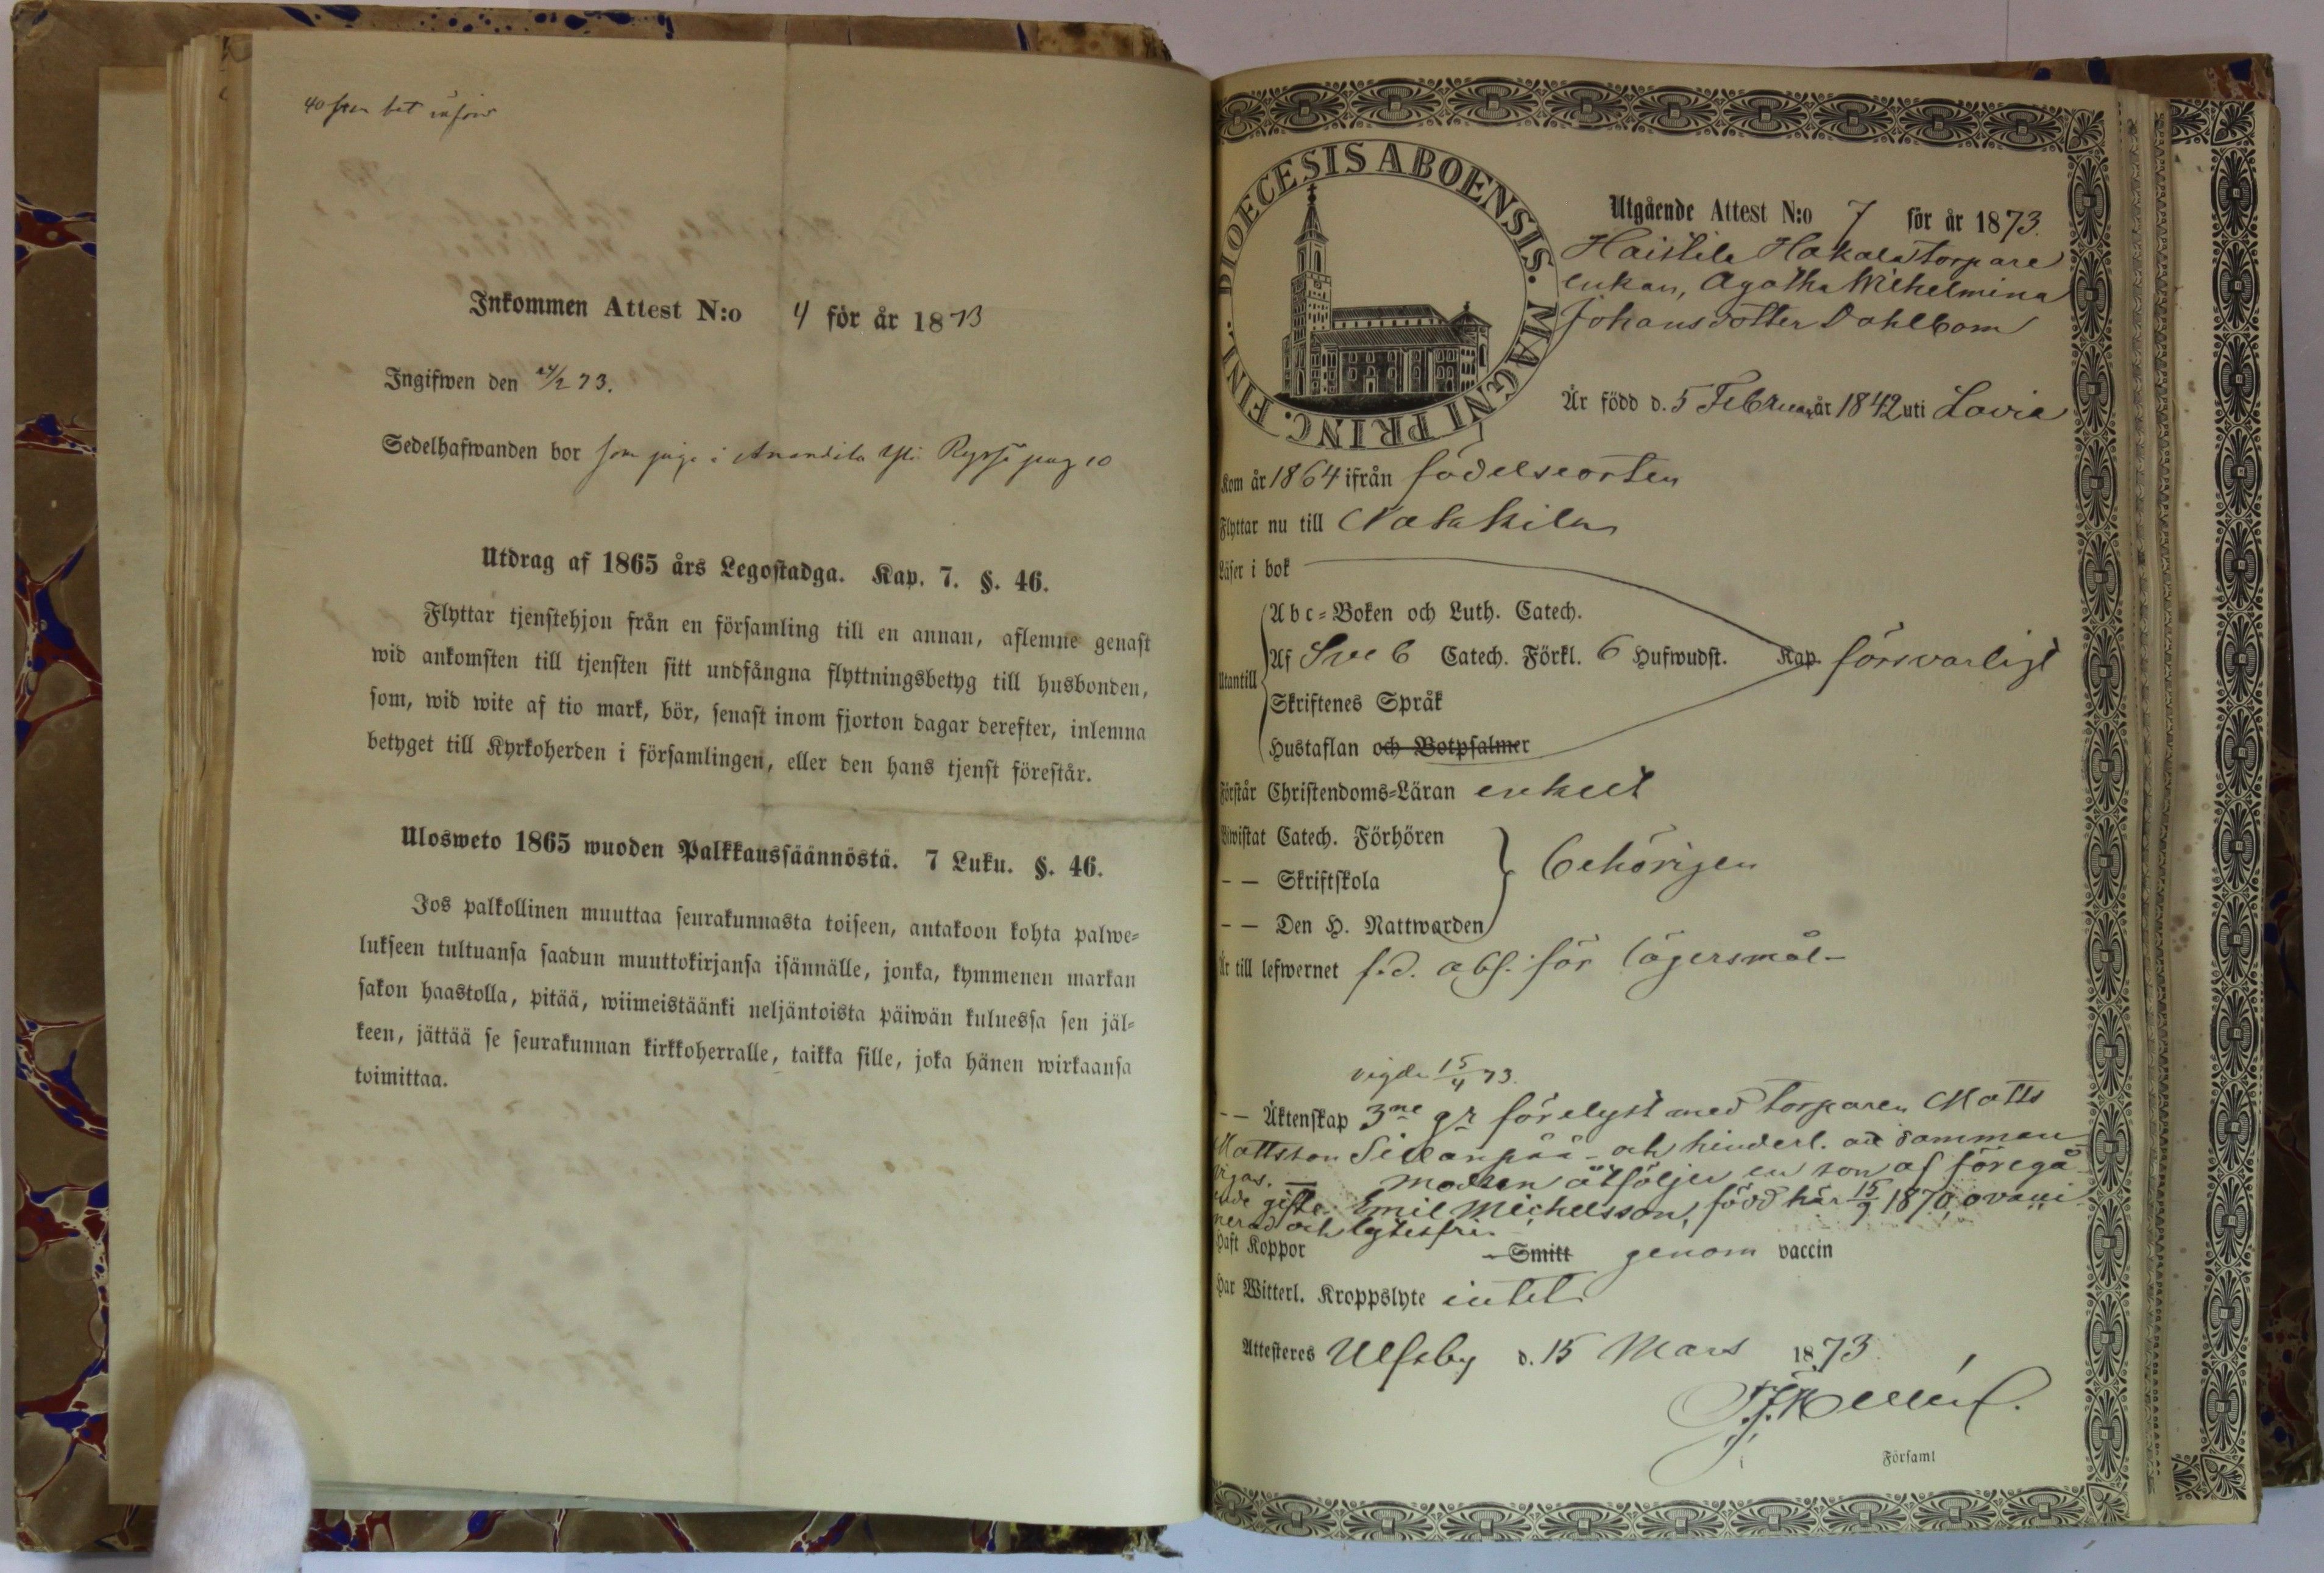 40
Inkommen Attest N:o 4 för år 1873
Ingifwen den 24/2 73.
Sedelhafwanden bor som piga i Anundila Yli Ryssä pag 10
Utdrag af 1865 års Legostadga. Kap. 7. §. 46.
Flyttar tjenstehjon från en församling till en annan, aflemne genast
wid ankomsten till tjensten sitt undfångna flyttningsbetyg till husbonden,
som, wid wite af tio mark, bör, senast inom fjorton dagar derefter, inlemna
betyget till Kyrkoherden i församlingen, eller den hans tjenst förestår.
Ulosweto 1865 wuoden Palkkaussäännöstä. 7 Luku. §. 46.
Jos palkollinen muuttaa seurakunnasta toiseen, antakoon kohta palwe-
lukseen tultuansa saadun muuttokirjansa isännälle, jonka, kymmenen markan
sakon haastolla, pitää, wiimeistäänki neljäntoista päiwän kuluessa sen jäl-
keen, jättää se seurakunnan kirkkoherralle, taikka sille, joka hänen wirkaansa
toimittaa.
DIOECESIS ABOENSIS. MAGNI PRINC. FINL.
Utgående Attest N:o 7 för år 1873.
Haistila Hakala torpare
enkan, Agatha Wilhelmina
Johansdotter Dahlbom
Är född d. 5 Februar år 1842 uti Lavia
Kom år 1864 ifrån födelseorten
Flyttar nu till Nakkila
Läser i bok
Abc-Boken och Luth. Catech.
Utantill Af Sveb Catech. Förkl. 6 Hufwudst. Kap försvarligt
Skriftenes Språk
Hustaflan och Botpsalmer
Förstår Christendoms-Läran enkelt
Biwistat Catech. Förhören
- - Skriftskola behörigen
- - Den H. Nattwarden
Är till lefwernet f.d. abs. för lägersmål-
vigde 15/4 73.
- - Äktenskap 3ne gr förelyst med torparen Matts
Mattsson Sillanpää - och hinderl. att samman-
vigas. — Modren åtföljer en son af föregå-
ende gifte: Emil Michelsson, född här 15/9 1870, ovacci-
nerad och lytesfri.
Haft Koppor - Smitt genom vaccin
Har Witterl. Kroppslyte intet
Attesteres Ulfsby d. 15 Mars 1873
Församl